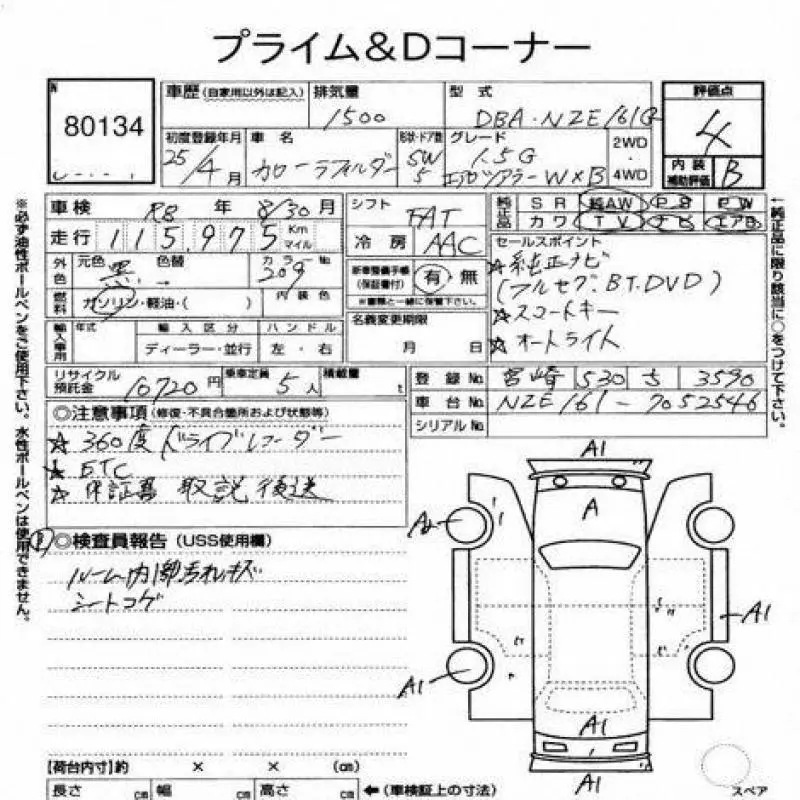 プライム&Dコーナー
80134
車歴 (自家用以外は記入)
排気量
1500
型式
DBA・NZE161G
評価点
4
初度登録年月
25/4月
車名
カローラフィルダー
形状・ドア数
SW
5
グレード
1.5G
エアロツアラーW×B
2WD
・
4WD
内装
補助評価
B
車検 R8 年 8/30 月
シフト
FAT
純正品
SR 純AW PS PW
カワ TV ナビ エアB
走行 115,975 Km マイル
冷房 AAC
外色
元色
黒
色替
→
カラーNo
209
新車整備手帳
(保証書付)
有・無
※書類と一緒に保管下さい。
セールスポイント
☆純正ナビ
(フルセグ.BT.DVD)
☆スマートキー
☆オートライト
燃料
ガソリン・軽油・( )
内装色
輸入車用
年式
輸入区分
ハンドル
ディーラー・並行
左・右
名義変更期限
月 日
リサイクル預託金 10720円
乗車定員 5人
積載量 t
登録No. 宮崎 530 ち 3590
車台No. NZE161-7052546
シリアルNo.
◎注意事項 (修復・不具合箇所および状態等)
☆360度ドライブレコーダー
☆ETC
☆保証書 取説 後送
◎検査員報告 (USS使用欄)
ルーム内1部汚れキズ
シートコゲ
A1
A
A1
A1
A1
A1
【荷台内寸】約 × × (cm)
長さ cm 幅 cm 高さ cm ←(車検証上の寸法)
スペア
※必ず油性ボールペンをご使用下さい。水性ボールペンは使用できません。
←純正品に限り該当に○をつけて下さい。